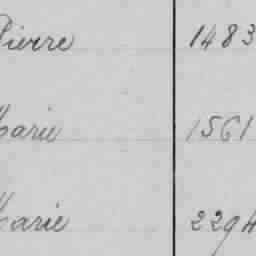 Pierre 1483
Marie 1561
Marie 2294